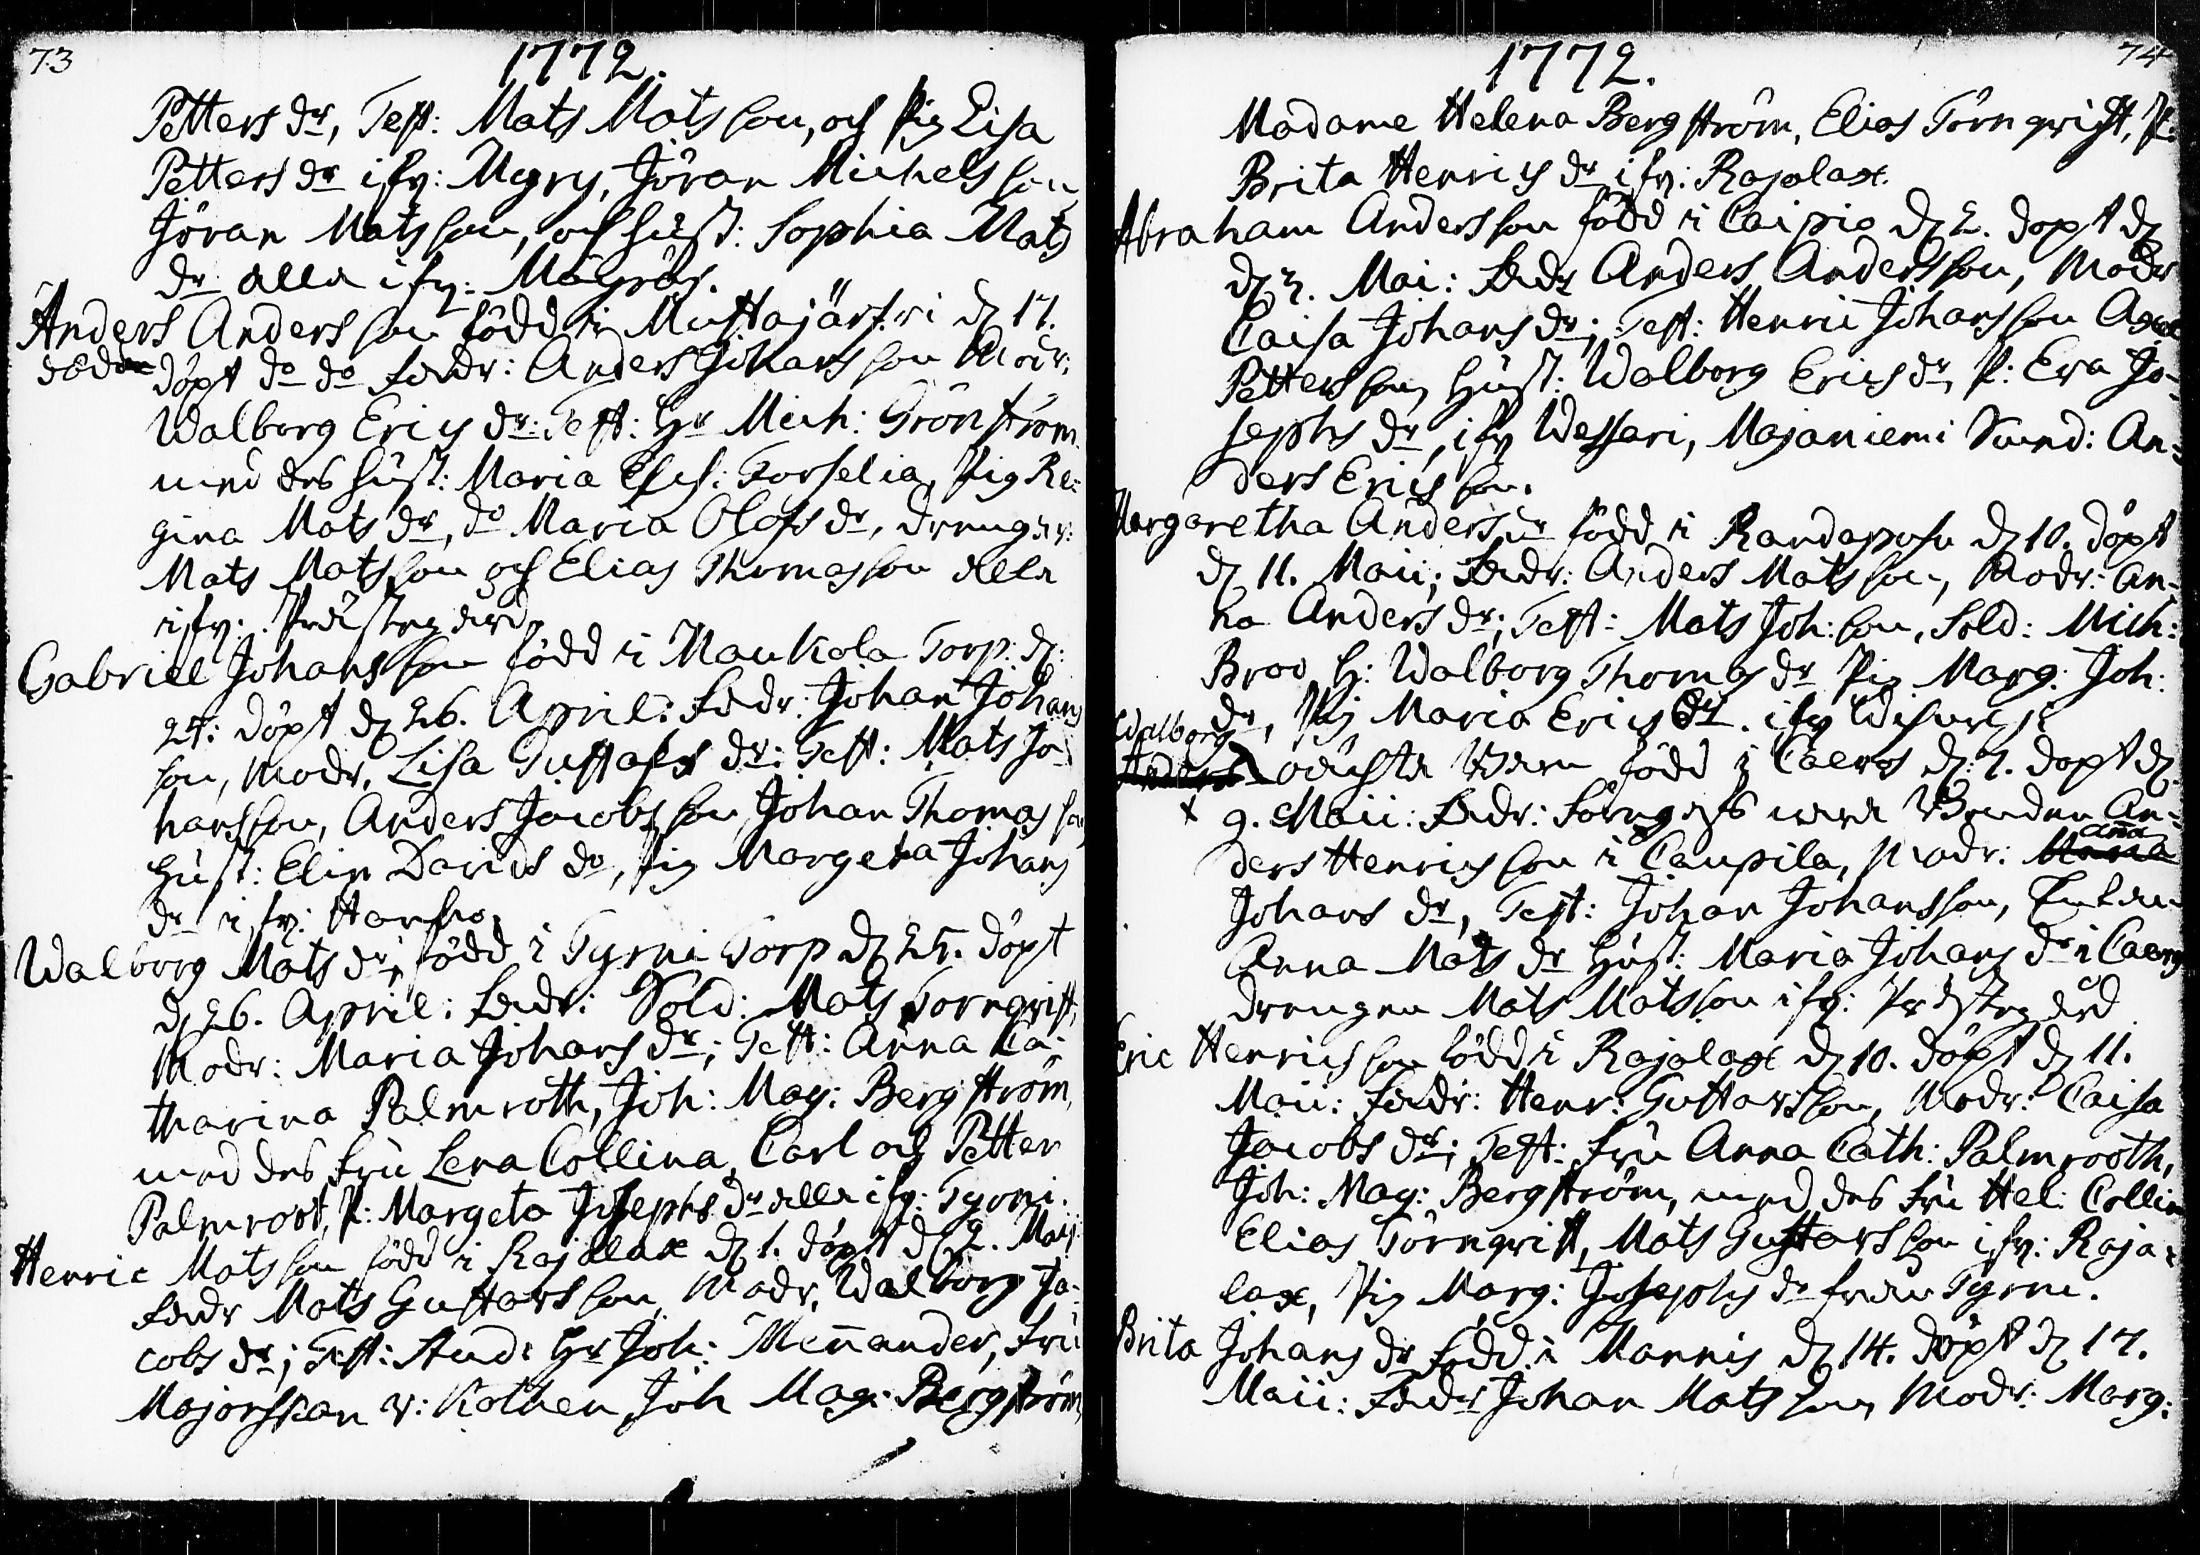 73
1772.
Petters dr, Test: Mats Matsson, och Pig Lisa
Petters dr ifr: Mgry, Jöran Michelsson
Jöran Matsson, och Hust: Sophia Mats
dr alla ifr: Mägrä.
Anders Andersson född i Mustajärfvi d 17.
död döpt do do Fadr: Anders Johansson Modr:
Walborg Erics dr: Test: Hr Mich: Grönström
med des Hust: Maria Forselia, Pig Re-
gina Mats dr, do Maria Olofs dr, drengar:
Mats Matsson och Elias Thomasson alla
ifr: Prästegård
Gabriel Johansson född i Maukola Torp: d:
25: döpt d 26. April: Fadr: Johan Johans
son, Modr. Lisa Gustafs dr: Test: Mats Jo-
hansson, Anders Jacobsson, Johan Thomasson
Hust: Elin Davids dr, Pig Margeta Johans
dr ifr: Hanho
Walborg Mats dr, född i Tyrni Torp d 25. döpt
d 26. April: Fadr: Sold: Mats Tornqvist,
Modr: Maria Johans dr; Test: Anna Ca-
tharina Palmroth, Joh: Mag: Bergström,
med des Fru Lena Collina, Carl och Petter
Palmroot, P: Margeta Josephs dr alla ifr: Tyrni.
Henric Matsson född i Rajalax d 1. döpt d 2. Maij
Fadr Mats Gustavsson, Modr. Walborg Ja-
cobs dr; Test: Stud: Hr Joh: Mennander, Fru
Majorskan v: Kothen, Joh Mag: Bergström,
74
1772.
Madame Helena Bergström, Elias Törnqwist, P.
Brita Henrics dr ifr: Rajalax.
Abraham Andersson född i Caipio d 2. döpt d
d 3. Mai: Fadr Anders Andersson, Modr
Caisa Johans dr; Test: Henric Johansson
Pettersson, Hust: Walborg Erics dr, P: Eva Jo-
sephs dr, ifr Wessari, Majaniemi Sund: An-
ders Ericsson.
Margaretha Anders dr född i Randapusu d 10. döpt
d 11. Maii; Fadr: Anders Matsson, Modr: An-
na Anders dr; Test: Mats Joh:son, Sold: Mich:
Brod, H: Walborg Thomas dr Pig Marg: Joh:
dr, Pig Maria Erics dr. ifr
Walborg
Anders oäckta Barn född i Caers d: 7. döpt d
x 9. Maii: Fadr: Bonden An-
ders Henricsson i Caupila, Modr: Maria Anna
Johans dr, Test: Johan Johansson,
Anna Mats dr Hust: Maria Johans dr i Caers
drengen Mats Matsson ifr: Prästegård
Eric Henricsson född i Rajalax d 10. döpt d 11.
Maii: Fadr: Henr: Gustavsson, Modr: Caisa
Jacobs dr; Test: Fru Anna Cath: Palmrooth,
Joh: Mag: Bergström, med des Fru Hel: Collin
Elias Törnqvist, Mats Gustavsson ifr: Raja-
lax, Pig Marg: Josephs dr från Tyrni.
Brita Johans dr född i Mannis d 14. döpt d 17.
Maii: Fadr Johan Matsson, Modr: Marg: